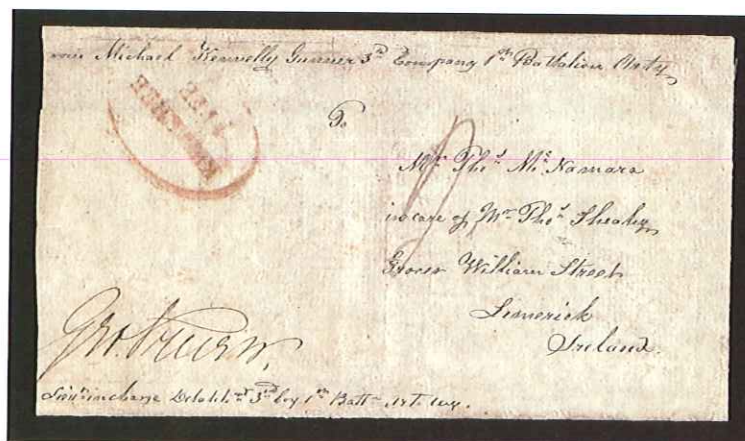 Michael Kennelly Gunner 3rd Company 1st Battalion Arty
To
Mr Thos Mc Namara
in care of Mr Thos Sheahy
Grocer William Street
Limerick
Ireland.
Geo.
in charge 3rd Coy 1st Batt